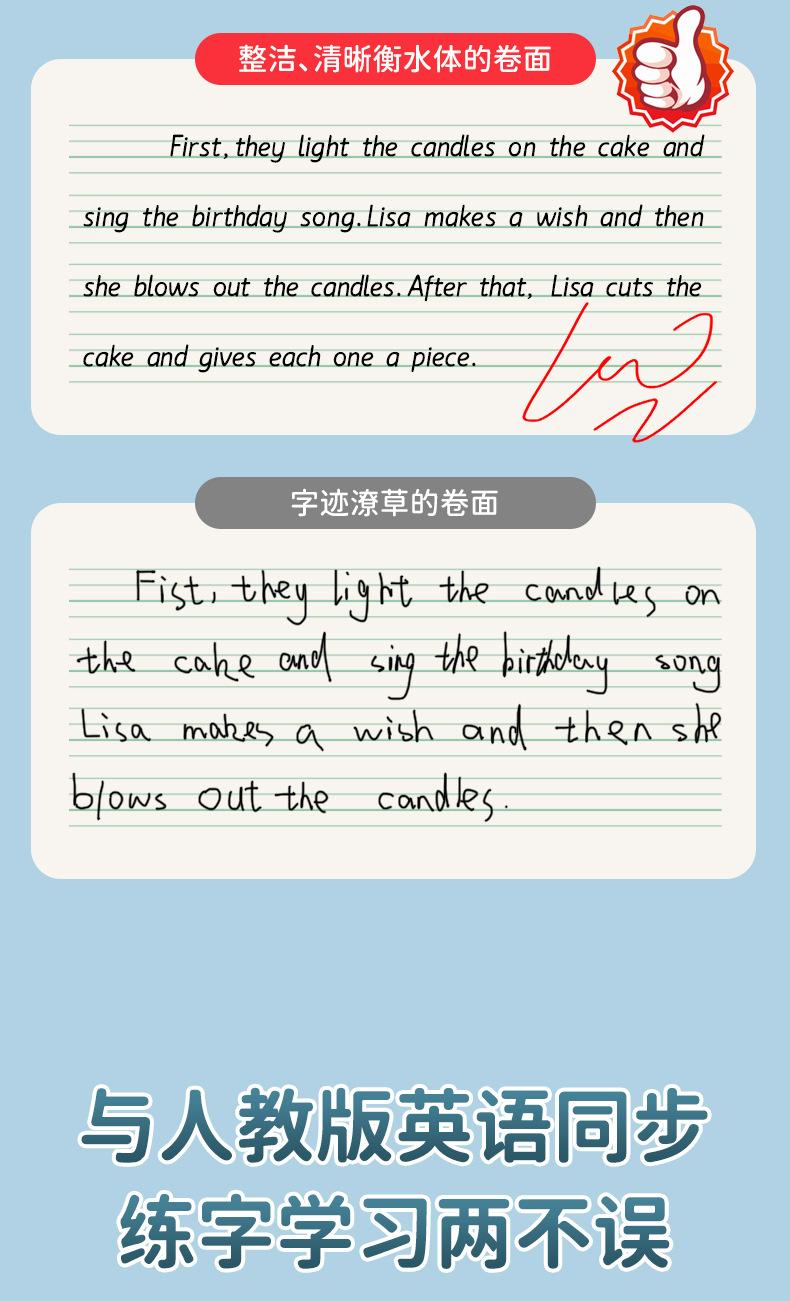 整洁、清晰衡水体的卷面
First, they light the candles on the cake and
sing the birthday song. Lisa makes a wish and then
she blows out the candles. After that, Lisa cuts the
cake and gives each one a piece.
字迹潦草的卷面
Fist, they light the candles on
the cake and sing the birthday song
Lisa makes a wish and then she
blows out the candles.
与人教版英语同步
练字学习两不误